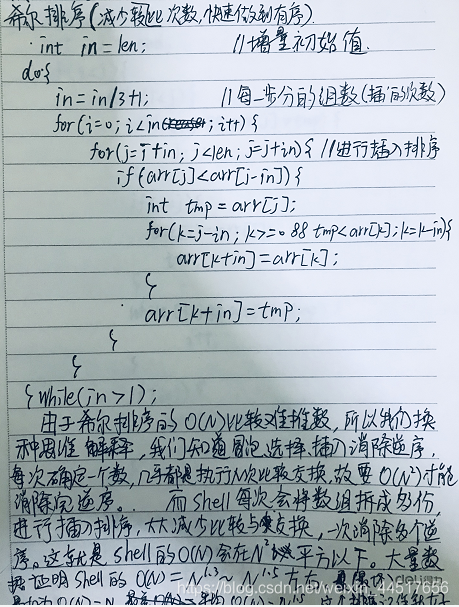 希尔排序(减少较比次数,快速做到有序).
int in=len; //增量初始值.
do{
in=in/3+1; //每一步分的组数(插的次数)
for(i=0;i<in;i++){
for(j=i+in;j<len;j=j+in){ //进行插入排序
if(arr[j]<arr[j-in]){
int tmp=arr[j];
for(k=j-in;k>=0&&tmp<arr[k];k=k-in){
arr[k+in]=arr[k];
}
arr[k+in]=tmp;
}
}
}while(in>1);
由于希尔排序的O(N)比较难推数,所以我们换
种思维解释,我们知道冒泡、选择、插入消除逆序,
每次确定一个数,几乎都是执行N次比较交换,故要O(N²)才能
消除完逆序。而Shell每次会将数组拆成多份,
进行插入排序,大大减少比较与交换,一次消除多个逆
序。这就是Shell的O(N)会在N²平方以下。大量数
据证明Shell的O(N)=N^1.3~N^1.5
https://blog.csdn.net/weixin_44517656